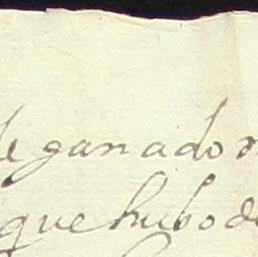 de ganado
que hubo de